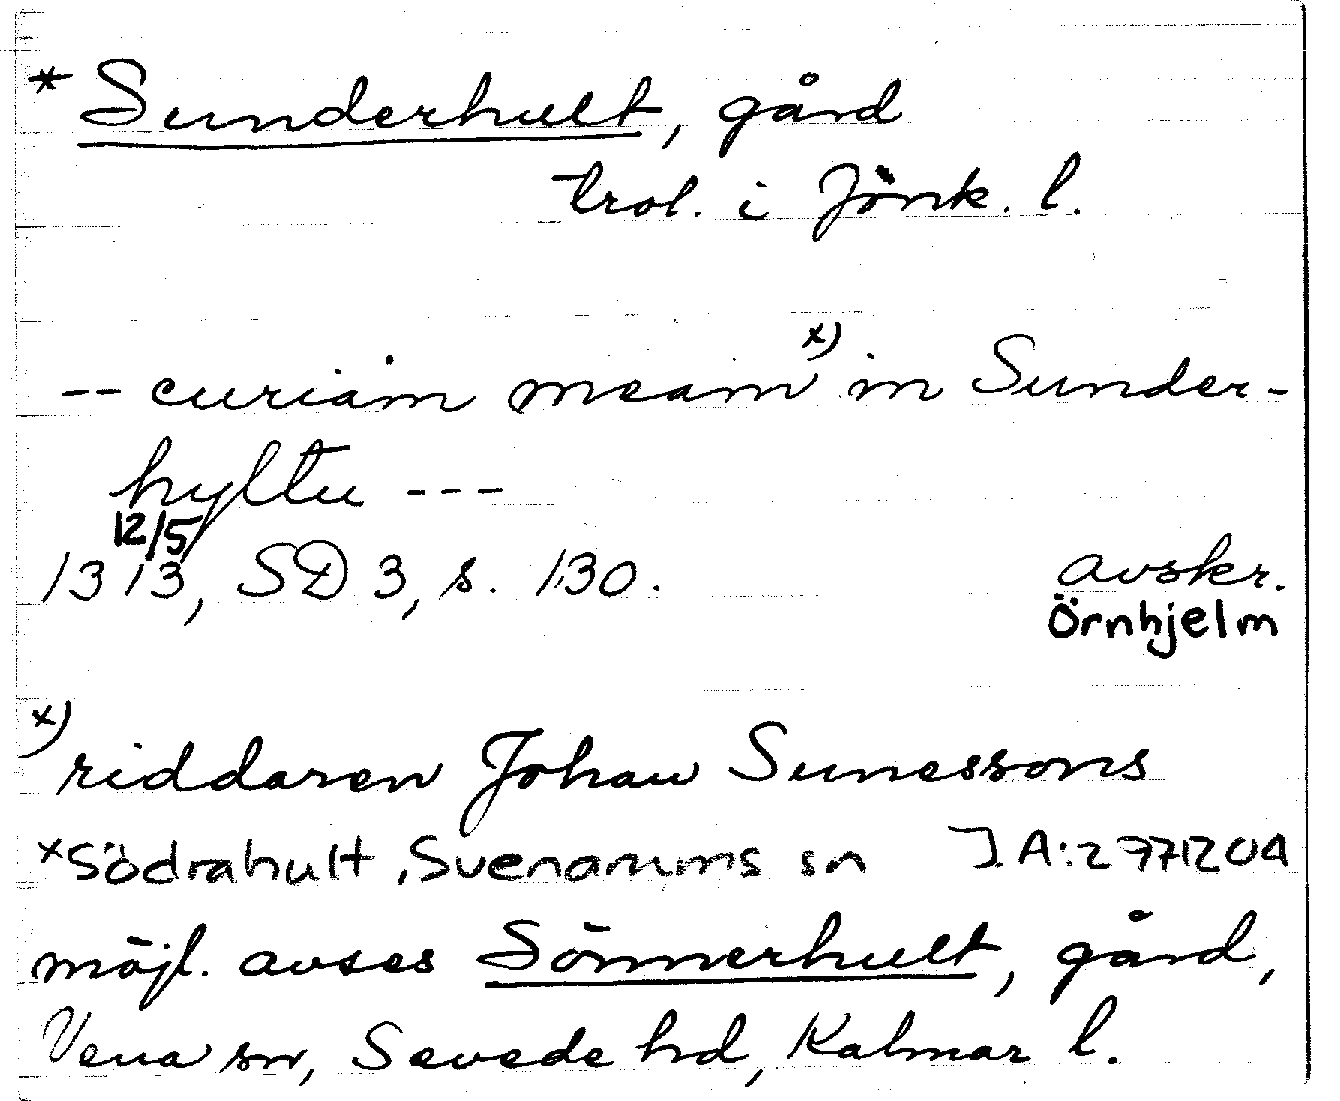 * Sunderhult, gård
trol. i Jönk. l.
-- curiam meam x) in Sunder-
hyltu ---
12/5
1313, SD 3, s. 130. avskr.
Örnhjelm
x) riddaren Johan Sunessons
x Södrahult, Svenarums sn JA:2771204
möjl. avses Sönnerhult, gård,
Vena sn, Sevede hd, Kalmar l.